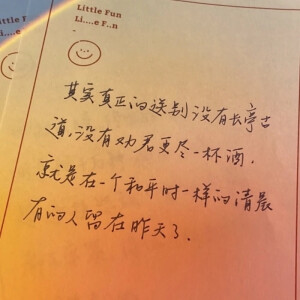 Little Fun
Li....e F..n
Little F
Li....e
其实真正的送别没有长亭古
道,没有劝君更尽一杯酒,
就是在一个和平时一样的清晨
有的人留在昨天了.